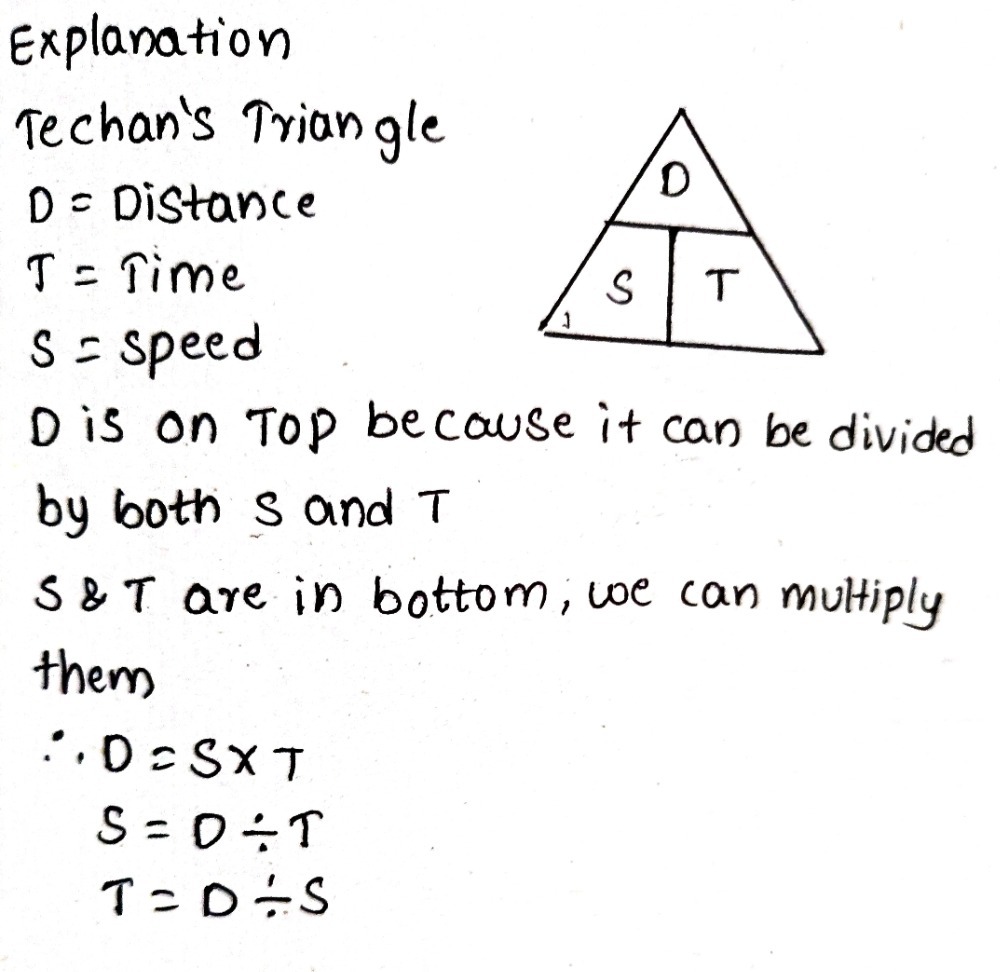 Explanation
Techan's Triangle
D = Distance
T = Time
S = Speed
D
S T
D is on Top because it can be divided
by both S and T
S & T are in bottom, we can multiply
them
∴ D = S x T
S = D ÷ T
T = D ÷ S